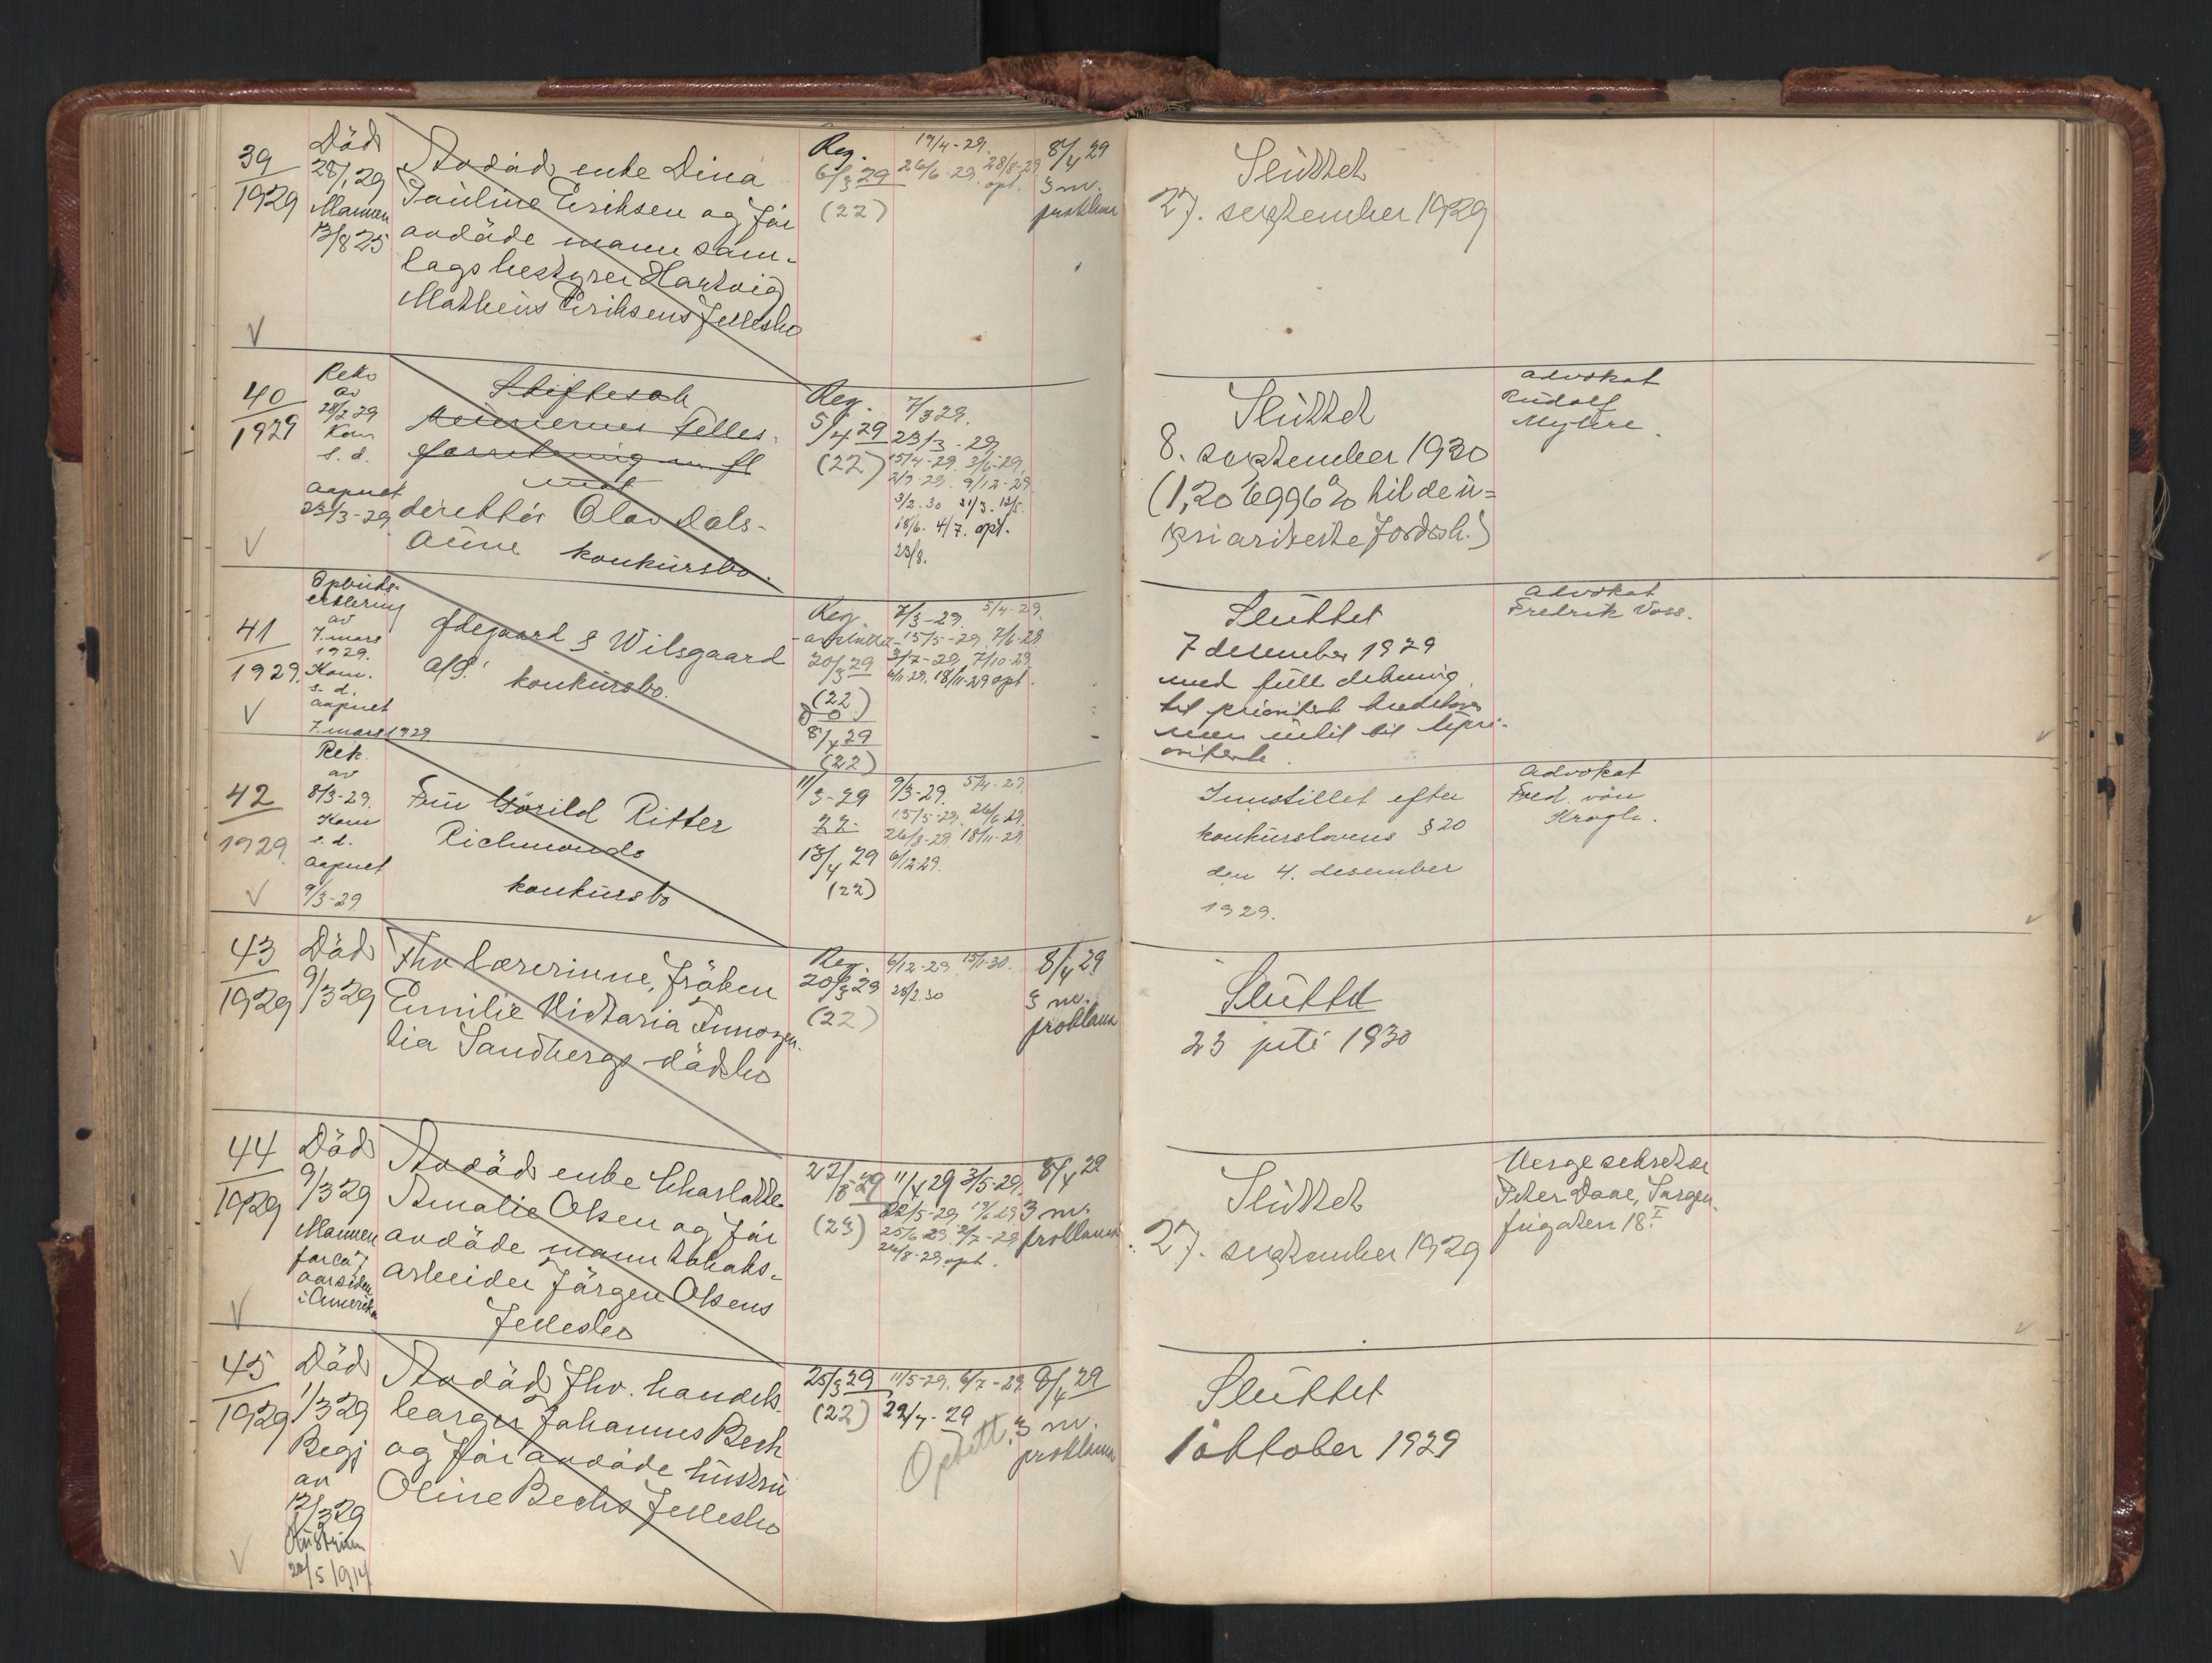 39
1929
Död
28/1 29
Mannen
13/8 25
Avdöd enke Dina
Pauline Eriksen og för
avdöde mann sam-
lagsbestyrer Hartvig
Matheus Eriksens fellesbo
Reg.
6/3 29
(22)
19/4-29.
26/6-29. 28/8-29.
opt.
8/4 29
3 m.
proklama
Sluttet
27. september 1929
40
1929
Rekv
av
28/2 29
Kom
s. d.
aapnet
23/3-29
Skiftesak
Meieriernes Felles-
forretning m. fl
mot
direktör Olav Dals-
aune konkursbo.
Reg.
5/4 29
(22)
7/3 29.
23/3-29
15/4-29. 3/6-29.
2/9-29. 9/12-29
3/2.30 31/3. 12/5.
18/6. 4/7. opt.
23/8.
Sluttet
8. september 1930
(1,206996% til de u-
prioriterte fordsh.)
advokat
Rudolf
Myhre.
41
1929.
Opbuds-
erklering
av
7. mars
1929.
Kom.
s. d.
aapnet
7. mars 1929
Ødegaard & Wilsgaard
A/S.
konkursbo.
Reg.
20/3 29
(22)
8/4 29
(22)
7/3-29. 5/4-29.
15/5-29. 7/6-29
3/7-29. 7/10-29.
6/11-29. 18/11-29 opt.
Sluttet
7 desember 1929
med full dekning
til prioritert kreditorer
men intet til upri-
oriterte.
Advokat
Fredrik Voss.
42
1929.
Rek.
av
8/3-29.
Kom
s. d.
aapnet
9/3-29
Fru Görild Ritter
Richmonds
konkursbo
11/3-29
22
13/4 29
(22)
9/3-29. 5/4-29.
15/5-29. 26/6 29.
26/8-29. 18/11-29.
6/12 29.
Innstillet efter
konkurslovens § 20
den 4. desember
1929.
Advokat
Fred. von
Krogh.
43
1929
Död
9/3 29
Fhv lærerinne, fröken
Emilie Victoria Innozen-
tia Sandbergs dödsbo
Reg.
20/3 29
(22)
6/12-29. 15/1-30.
28/2.30
8/4 29
3 m.
proklama
Sluttet
23 juli 1930
44
1929
Död
9/3 29
Mannen
for ca 7
aar siden
i Amerika
Avdöd enke Charlotte
Amalie Olsen og för
avdöde mann tobaks-
arbeider Jörgen Olsens
fellesbo
(23)
11/4 29 3/5-29.
22/5-29 19/6 29
25/6 29. 2/7-29
26/8-29. opt.
8/4 29
3 m.
proklama
Sluttet
27. september 1929
Vergesekretær
Peter Daae, Sorgen-
frigaten 18 I
45
1929
Död
1/3 29
Begj
av
12/3 29
Hustruen
22/5 1914
Avdöd fhv. handels-
borger Johannes Bech
og för avdöde hustru
Oline Bechs fellesbo
25/3 29
(22)
11/5-29. 4/7-29
22/7-29
Opstilt.
8/4 29
3 m.
proklama
Sluttet
1 oktober 1929